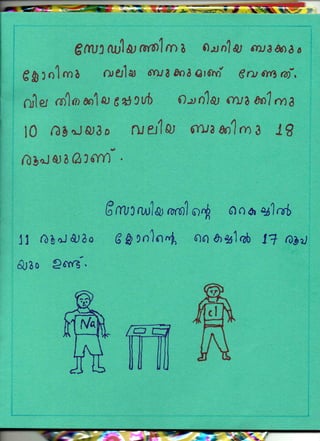 സോഡിയത്തിനു ചെറിയ ബുക്കും
ക്ലോറിനു വലിയ ബുക്കുമാണ് വേണ്ടത്.
വില തിരക്കിയപ്പോൾ ചെറിയ ബുക്കിനു
10 രൂപയും വലിയ ബുക്കിനു 18
രൂപയുമാണ്.
സോഡിയത്തിന്റെ കൈയ്യിൽ
11 രൂപയും ക്ലോറിന്റെ കൈയ്യിൽ 17 രൂപ
യും ഉണ്ട്.
Na
cl